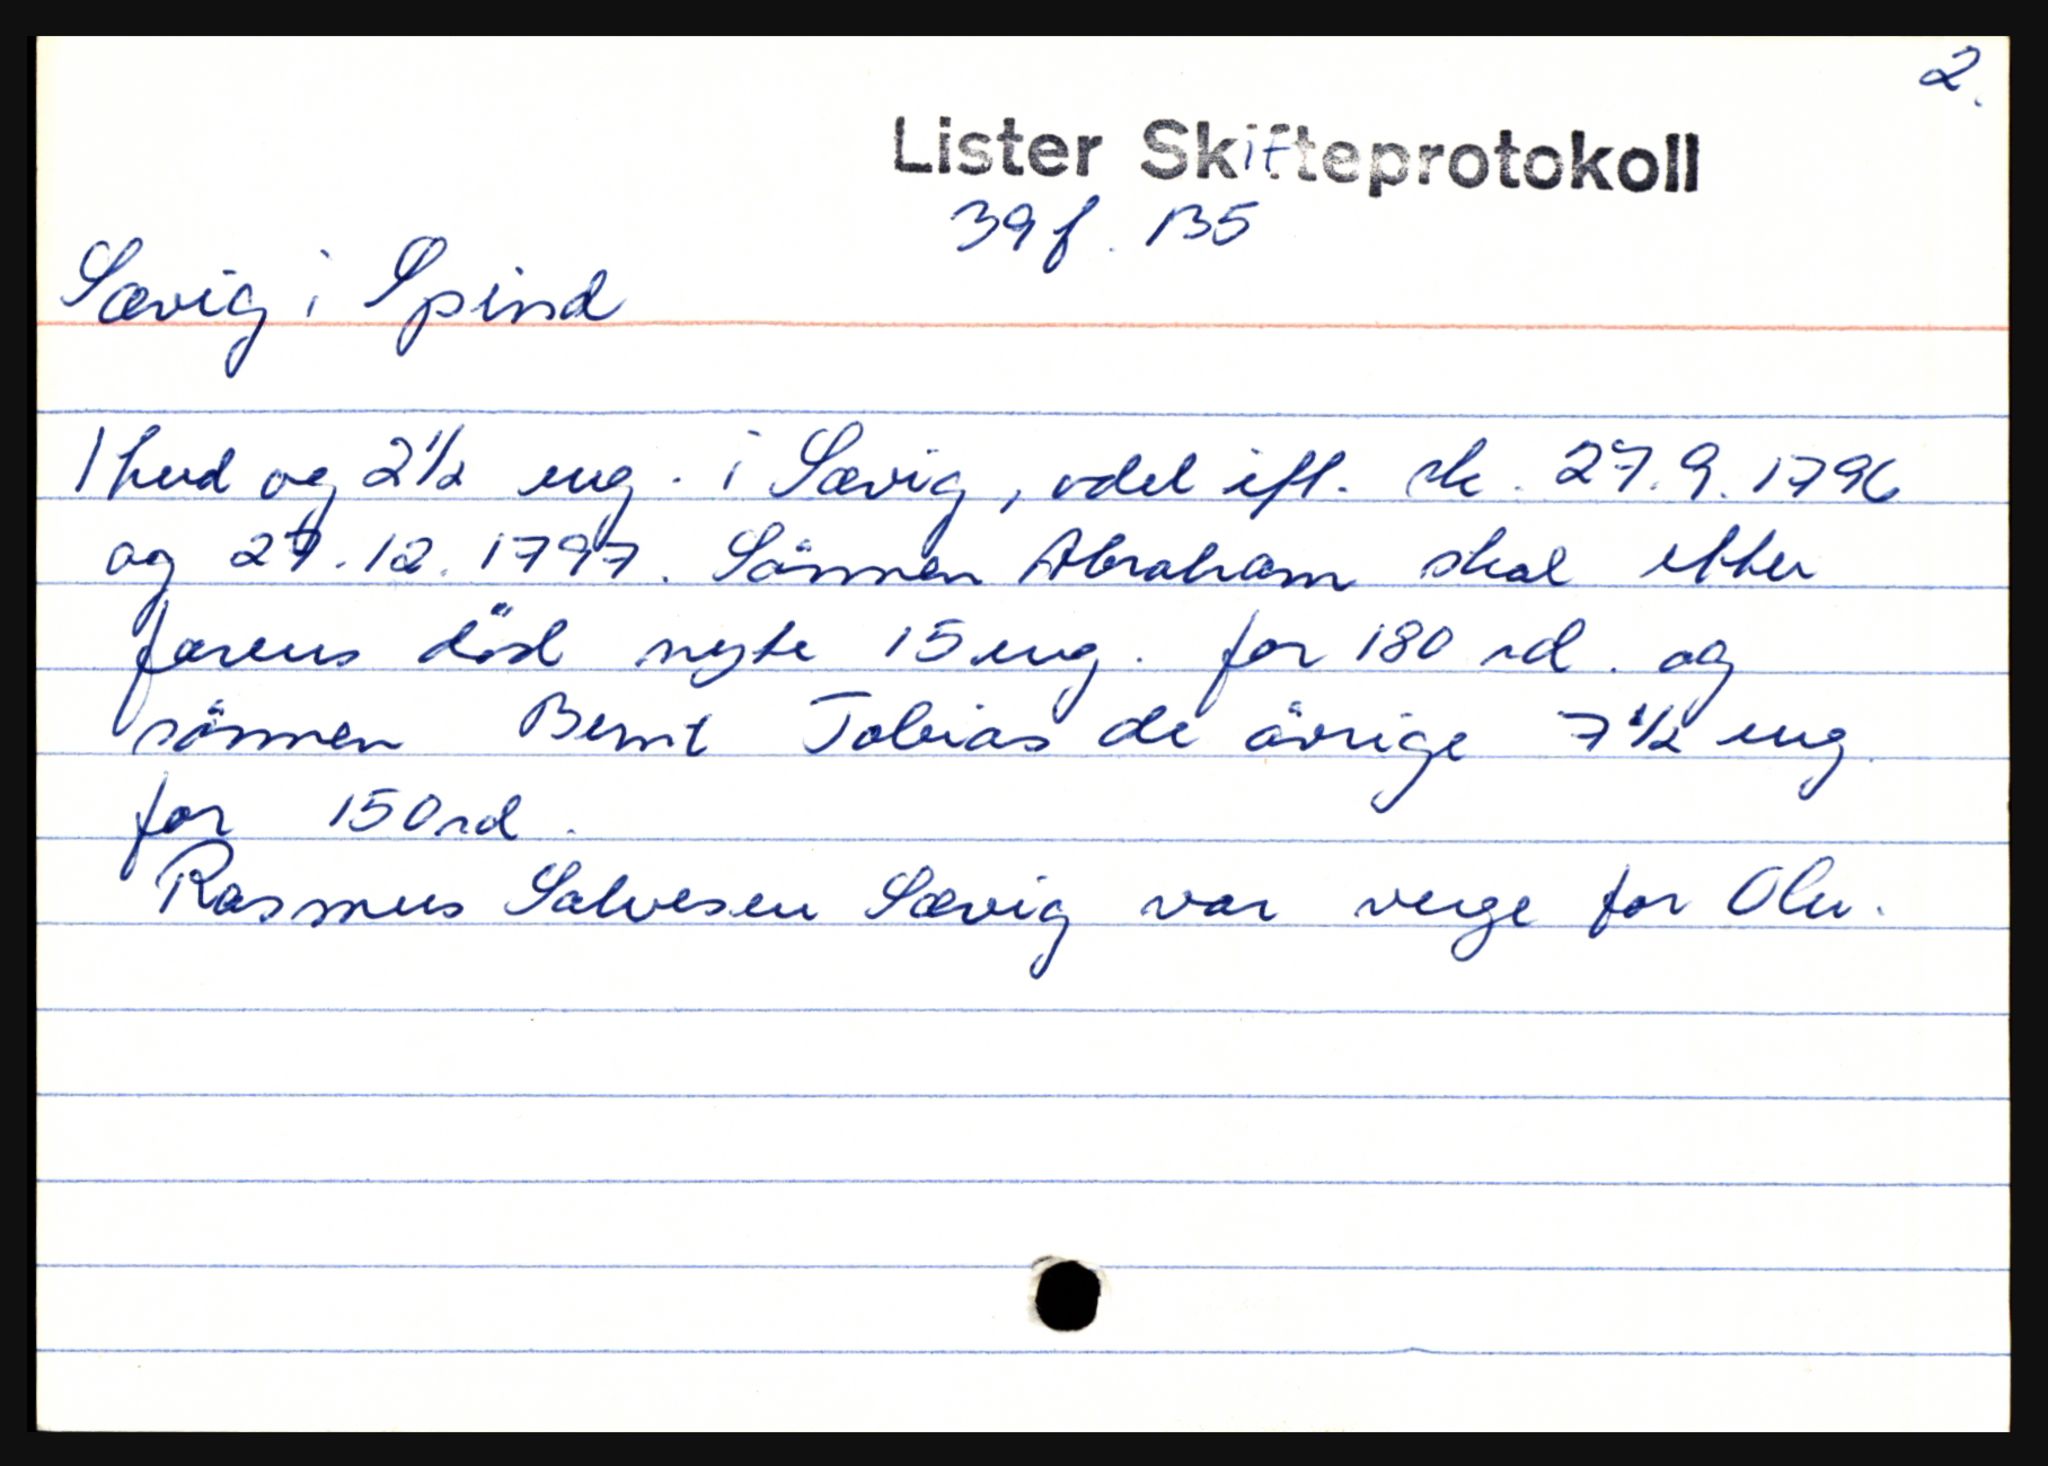 2.
Lister Skifteprotokoll
39 f. 135
Sævig i Spind
1 hud og 2 1/2 eng. i Sævig, odel ifl. sk. 27.9.1796
og 27.12.1797. Sönnen Abraham skal etter
farens död nyte 15 eng. for 180 rd. og
sönnen Bernt Tobias de övrige 7 1/2 eng.
for 150 rd.
Rasmus Salvesen Sævig var verge for